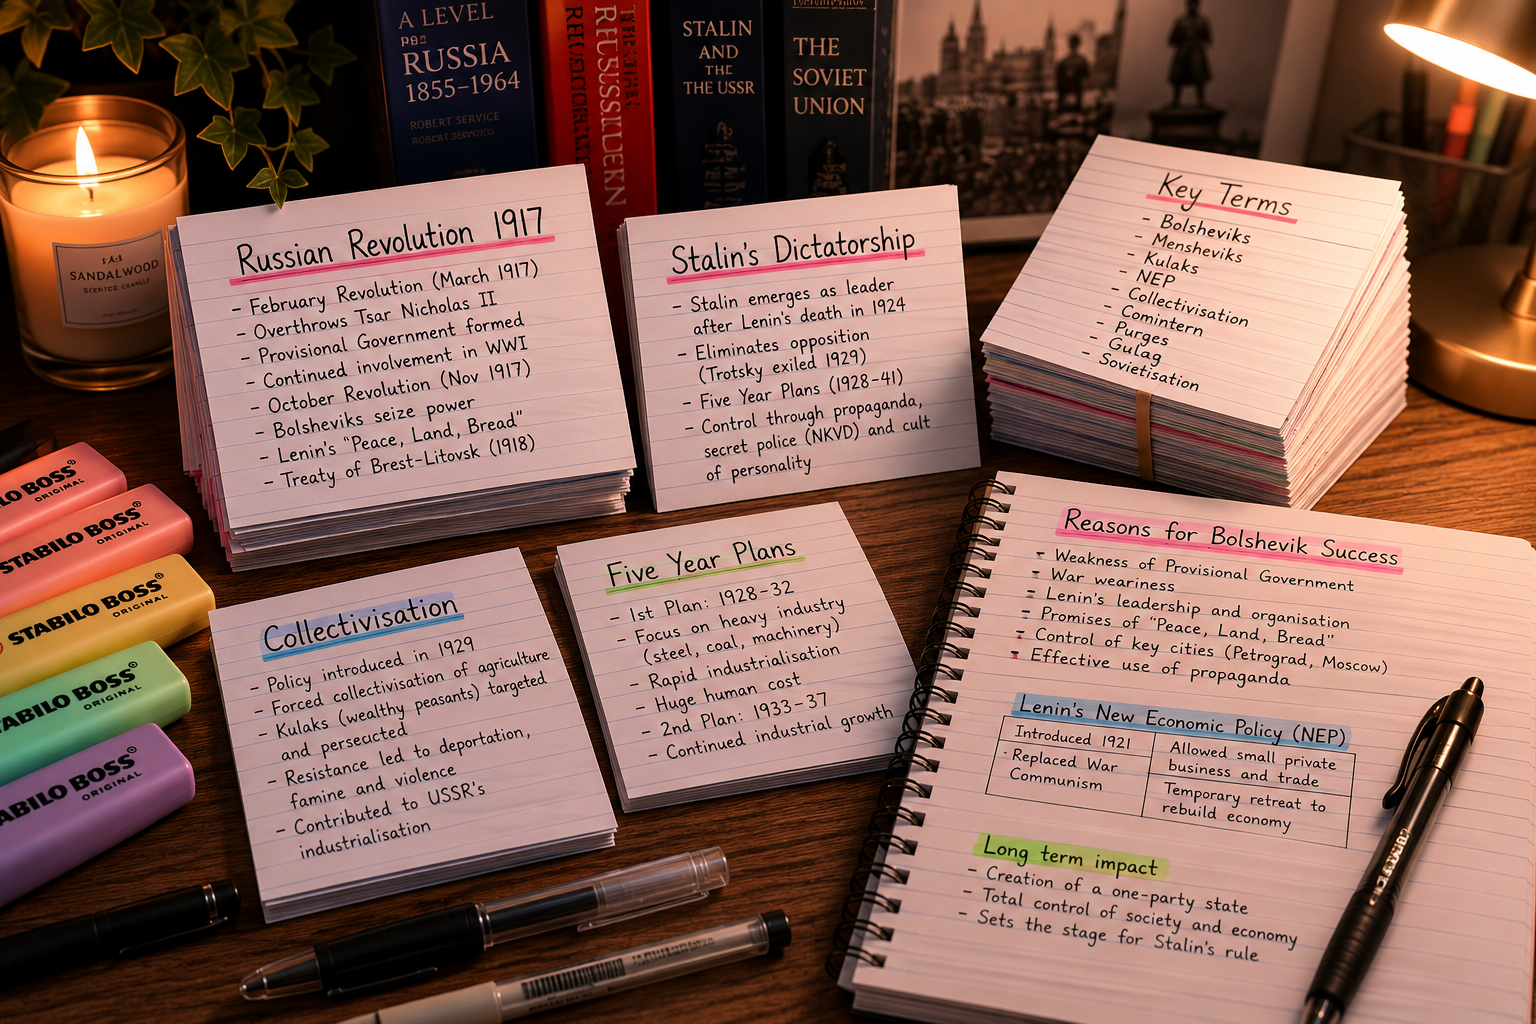 A LEVEL
RUSSIA
1855–1964
ROBERT SERVICE
STALIN
AND
THE
THE USSR
THE
SOVIET
UNION
SANDALWOOD
Russian Revolution 1917
- February Revolution (March 1917)
- Overthrows Tsar Nicholas II
- Provisional Government formed
- Continued involvement in WWI
- October Revolution (Nov 1917)
- Bolsheviks seize power
- Lenin's "Peace, Land, Bread"
- Treaty of Brest-Litovsk (1918)
Stalin's Dictatorship
- Stalin emerges as leader
after Lenin's death in 1924
- Eliminates opposition
(Trotsky exiled 1929)
- Five Year Plans (1928-41)
- Control through propaganda,
secret police (NKVD) and cult
of personality
Key Terms
- Bolsheviks
- Mensheviks
- Kulaks
- NEP
- Collectivisation
- Comintern
- Purges
- Gulag
- Sovietisation
LO BOSS
ORIGINAL
STABILO BOSS®
ORIGINAL
STABILO BOSS®
ORIGINAL
TABILO BOSS®
ORIGINAL
ABILO BOSS®
ORIGINAL
Collectivisation
- Policy introduced in 1929
- Forced collectivisation of agriculture
- Kulaks (wealthy peasants) targeted
and persecuted
- Resistance led to deportation,
famine and violence
- Contributed to USSR's
industrialisation
Five Year Plans
- 1st Plan: 1928-32
- Focus on heavy industry
(steel, coal, machinery)
- Rapid industrialisation
- Huge human cost
- 2nd Plan: 1933-37
- Continued industrial growth
Reasons for Bolshevik Success
- Weakness of Provisional Government
- War weariness
- Lenin's leadership and organisation
- Promises of "Peace, Land, Bread"
- Control of key cities (Petrograd, Moscow)
- Effective use of propaganda
Lenin's New Economic Policy (NEP)
Introduced 1921
Allowed small private
business and trade
· Replaced War
Communism
Temporary retreat to
rebuild economy
Long term impact
- Creation of a one-party state
- Total control of society and economy
- Sets the stage for Stalin's rule